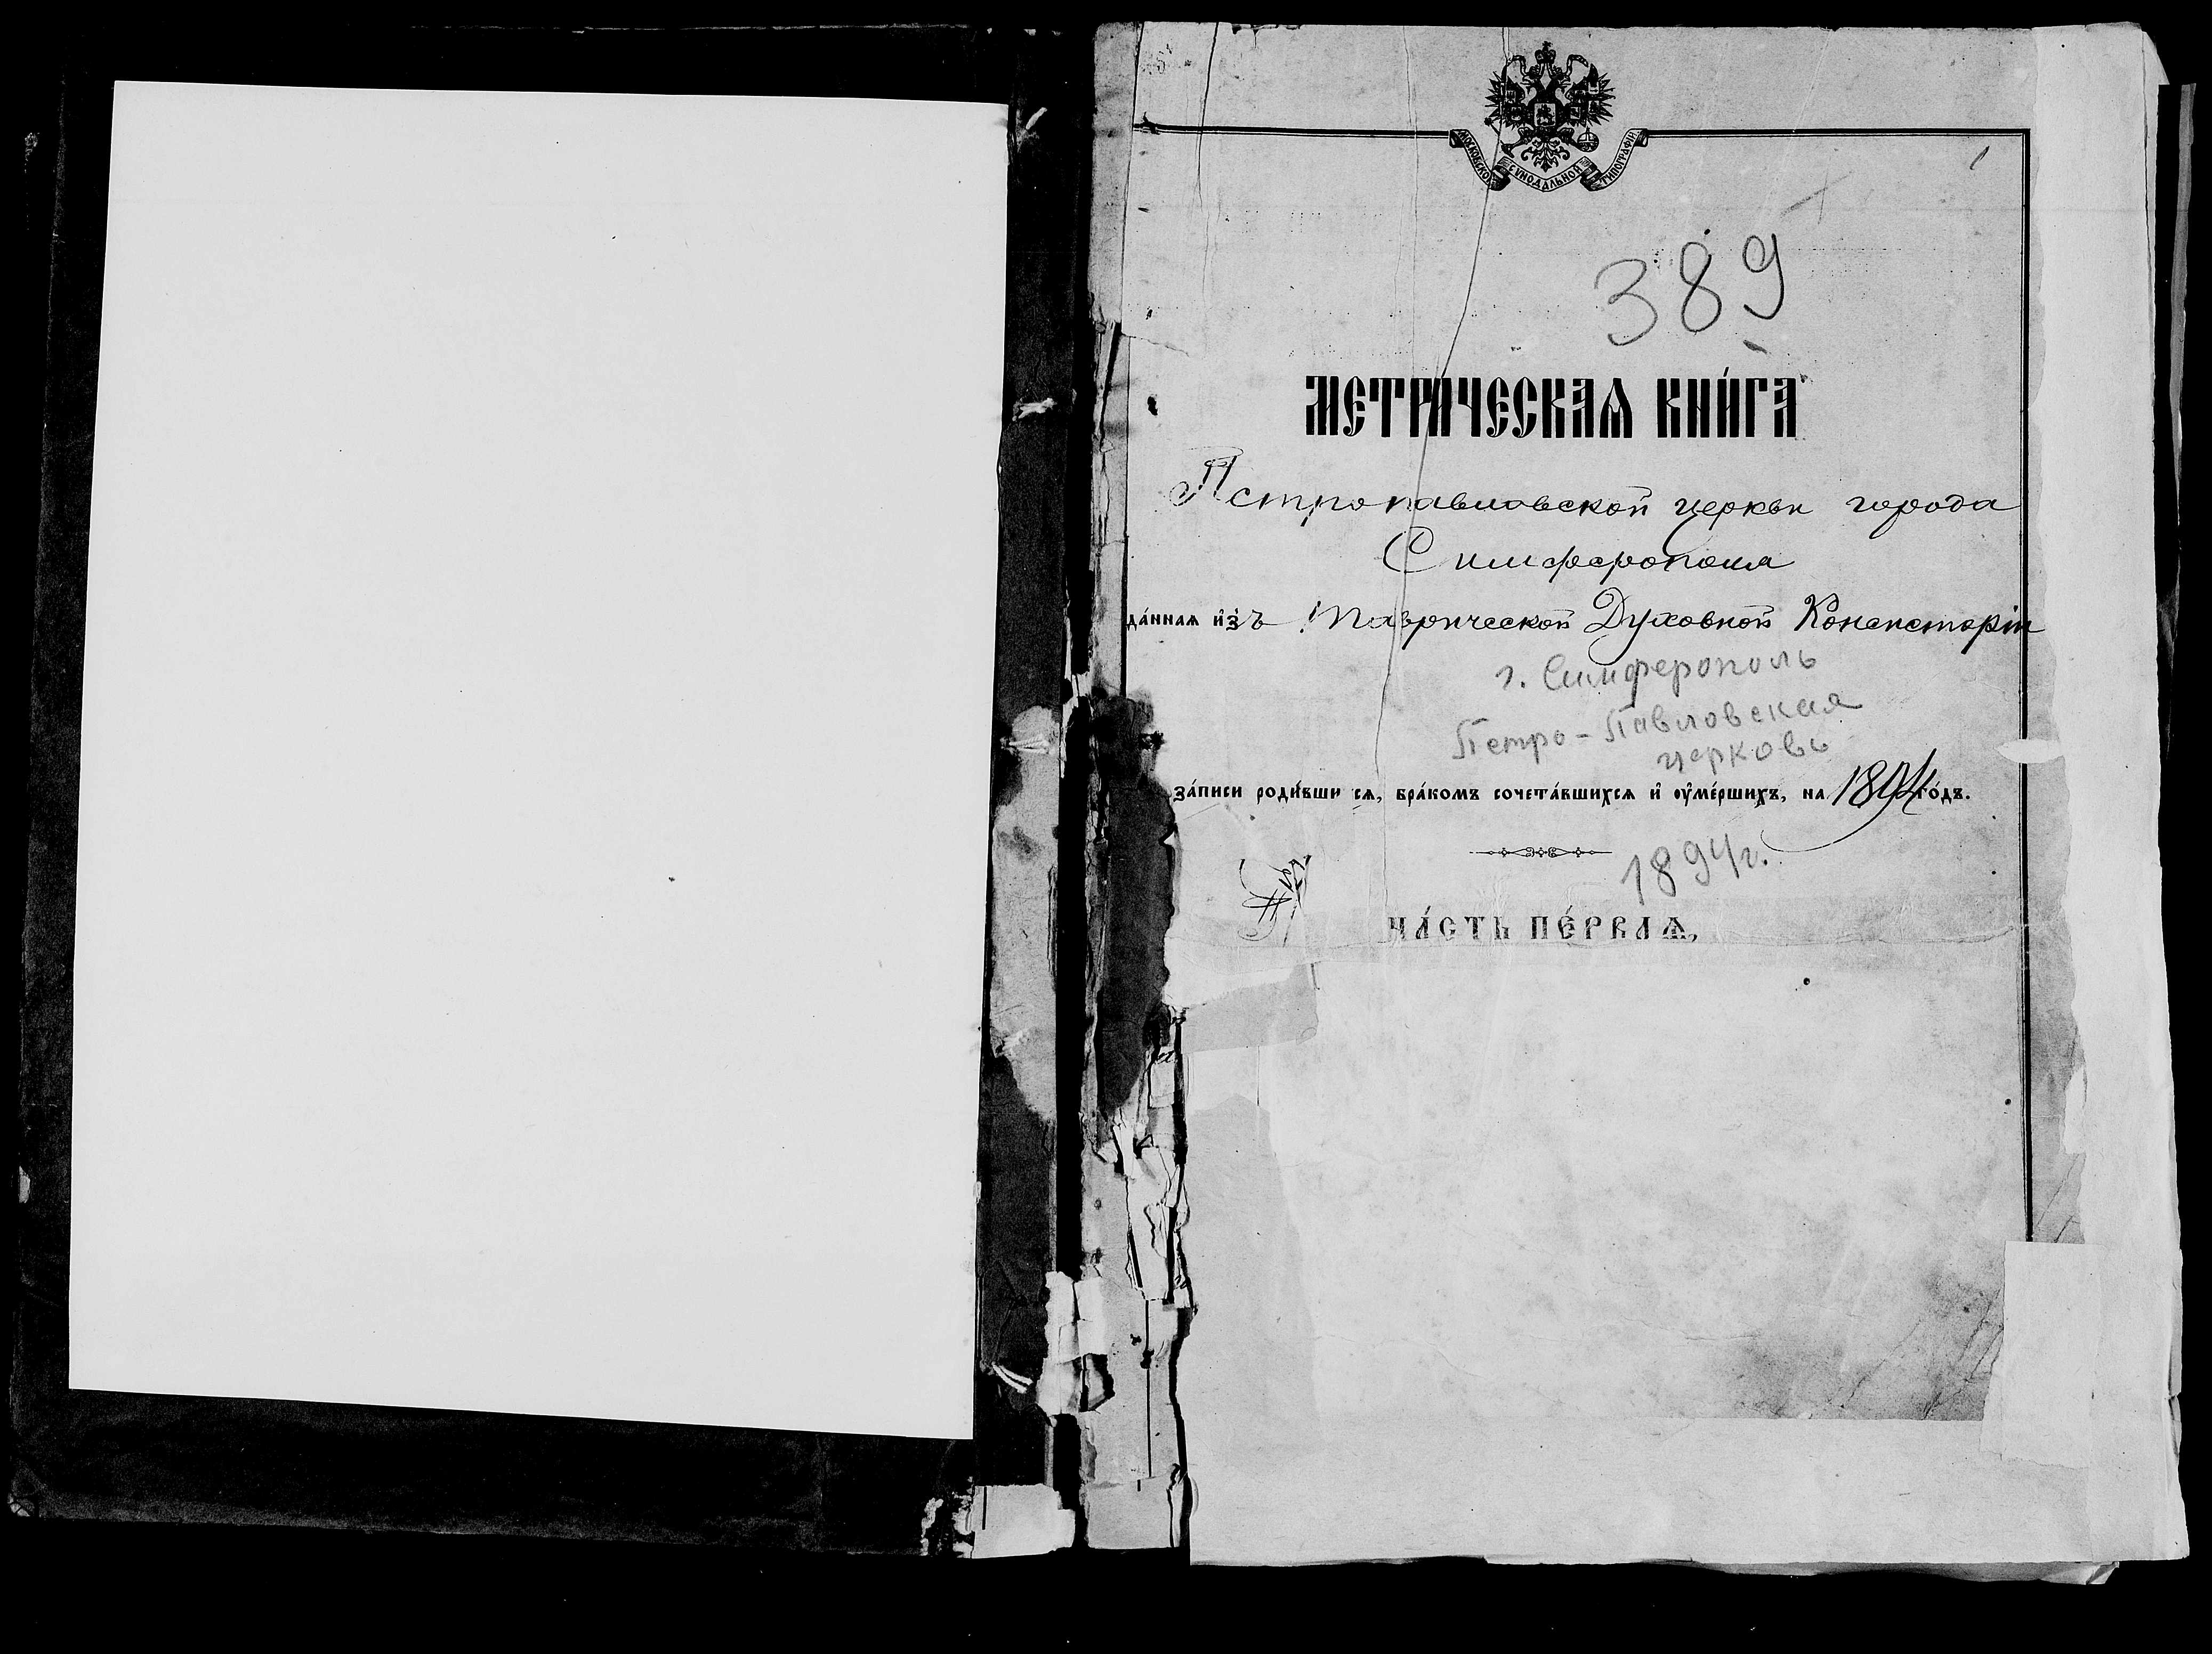 МОСКОВСКОЙ СѴНОДАЛЬНОЙ ТИПОГРАФІИ
1
389
МЕТРИ́ЧЕСКАѦ КНИ́ГА
Петропавловской церкви города
Симферополя
да́ннаѧ и҆зъ Таврической Духовной Консисторіи
г. Симферополь
Петро-Павловская
церковь
за́писи роди́вши сѧ, бра́комъ сочета́вшихсѧ и҆ ᲂу҆ме́ршихъ, на 1894 го́дъ.
1894 г.
ЧА́СТЬ ПЕ́РВАѦ,